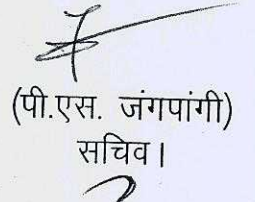 (पी.एस. जंगपांगी)
सचिव।